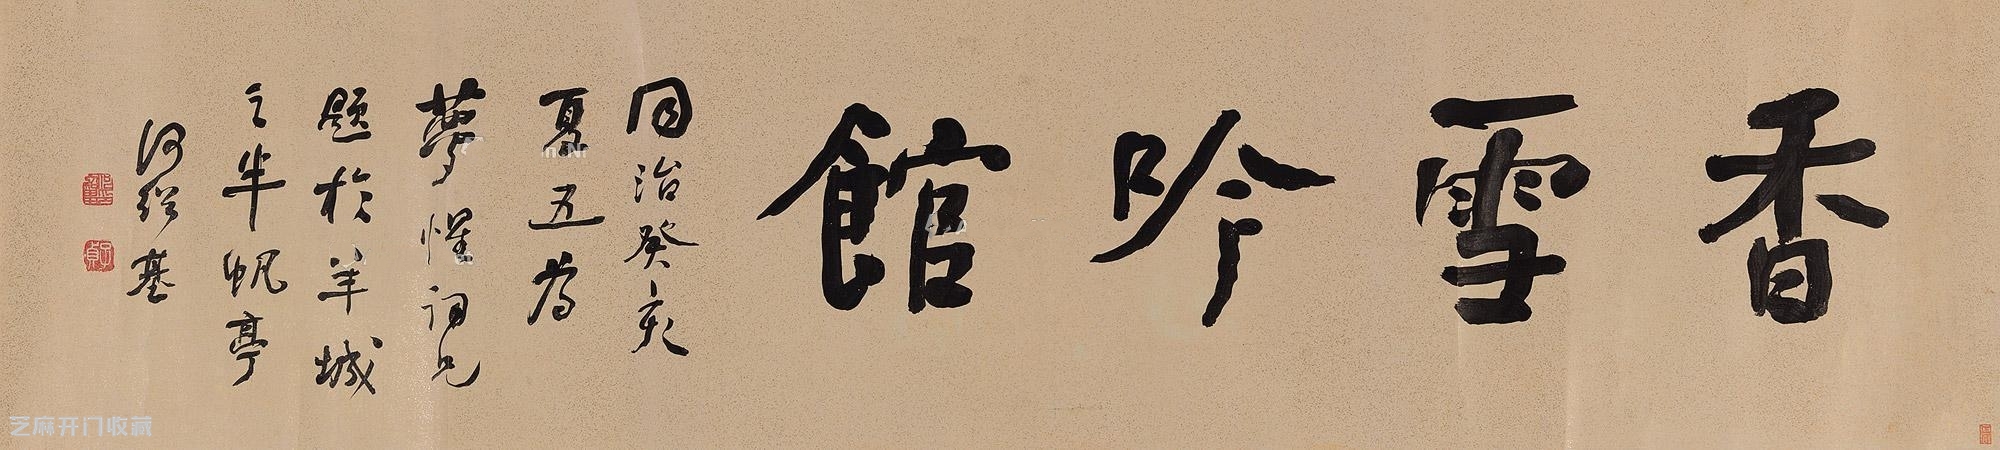 香雪吟館
同治癸亥
夏五為
夢惺詞兄
題於羊城
之半帆亭
何紹基
芝麻开门收藏